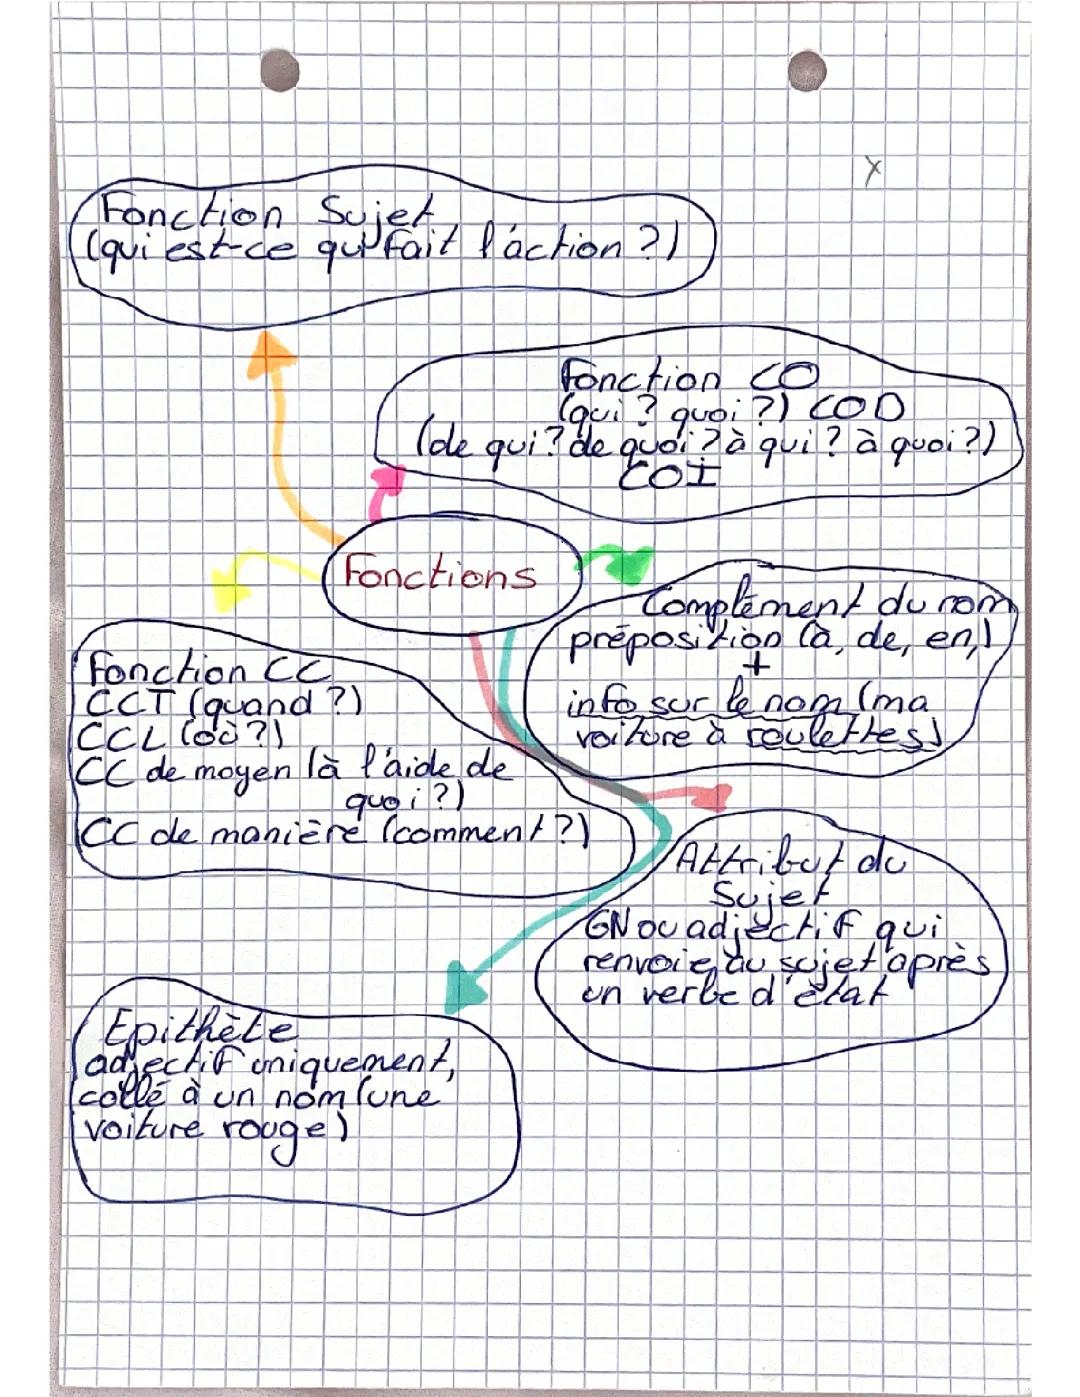 Fonction Sujet
(qui est-ce qui fait l'action ?)
Fonction CO
(qui ? quoi ?) COD
(de qui ? de quoi ? à qui ? à quoi ?)
COI
Fonctions
Complément du nom
préposition (à, de, en,)
+
info sur le nom (ma
voiture à roulettes)
Fonction CC
CCT (quand ?)
CCL (où ?)
CC de moyen (à l'aide de
quoi ?)
CC de manière (comment ?)
Attribut du
Sujet
GN ou adjectif qui
renvoie au sujet après
un verbe d'état
Epithète
adjectif uniquement,
collé à un nom (une
voiture rouge)